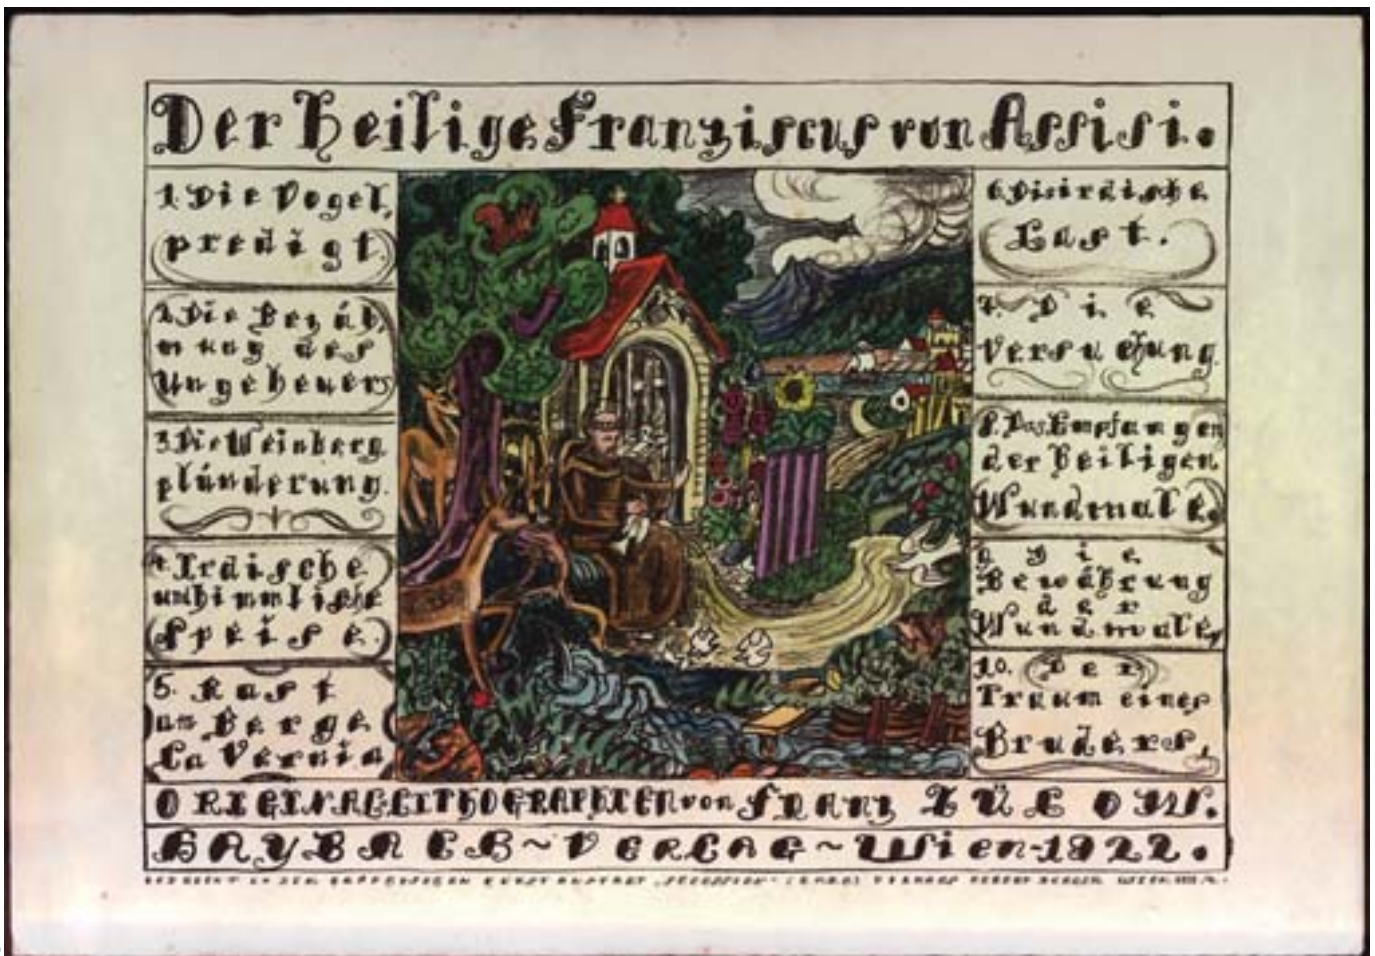 Der heilige Franziscus von Assisi.
1. Die Vogel,
predigt.
2. Die Bezäh,
mung des
Ungeheuers
3. Die Weinberg
plünderung.
4. Irdische
und himmlische
Speise.
5. Rast
am Berge
La Vernia
6. Die irdische
Last.
7. Die
Versuchung.
8. Das Empfangen
der heiligen
Wundmale.
9. Die
Bewährung
der
Wundmale,
10. Der
Traum eines
Bruders,
ORIGINAL-LITHOGRAPHIEN von Franz ZÜLOW.
HAYBACH~VERLAG~Wien-1922.